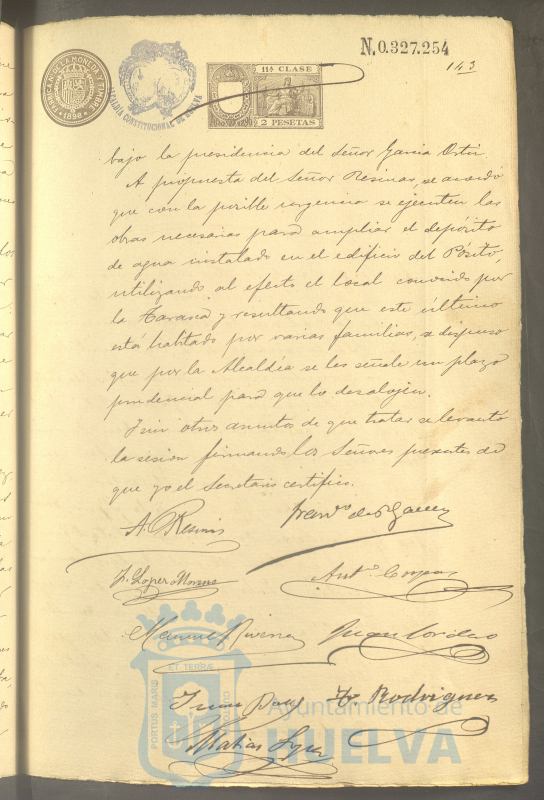 N.0.327.254
143
FABRICA NACIONAL DE LA MONEDA Y TIMBRE
1898
ALCALDÍA CONSTITUCIONAL DE HUELVA
11ª CLASE
2 PESETAS
bajo la presidencia del Señor Garcia Ortiz.
A propuesta del Señor Resinas, se acordó
que con la posible urgencia se ejecuten las
obras necesarias para ampliar el depósito
de agua instalado en el edificio del Pósito,
utilizando al efecto el local conocido por
la Tarasca y resultando que este último
está habitado por varias familias, se dispuso
que por la Alcaldía se les señale un plazo
prudencial para que lo desalojen.
Y sin otros asuntos de que tratar se levantó
la sesión firmando los Señores presentes de
que yo el Secretario certifico.
A. Resinas
Franco de P. Garcia
J. Lopez Moreno
Antº
Manuel Rivera
Juan Cordero
F. Rodriguez
Matias Lopez
PORTUS MARIS
ET TERRAE
CUSTODIA
Ayuntamiento de
HUELVA